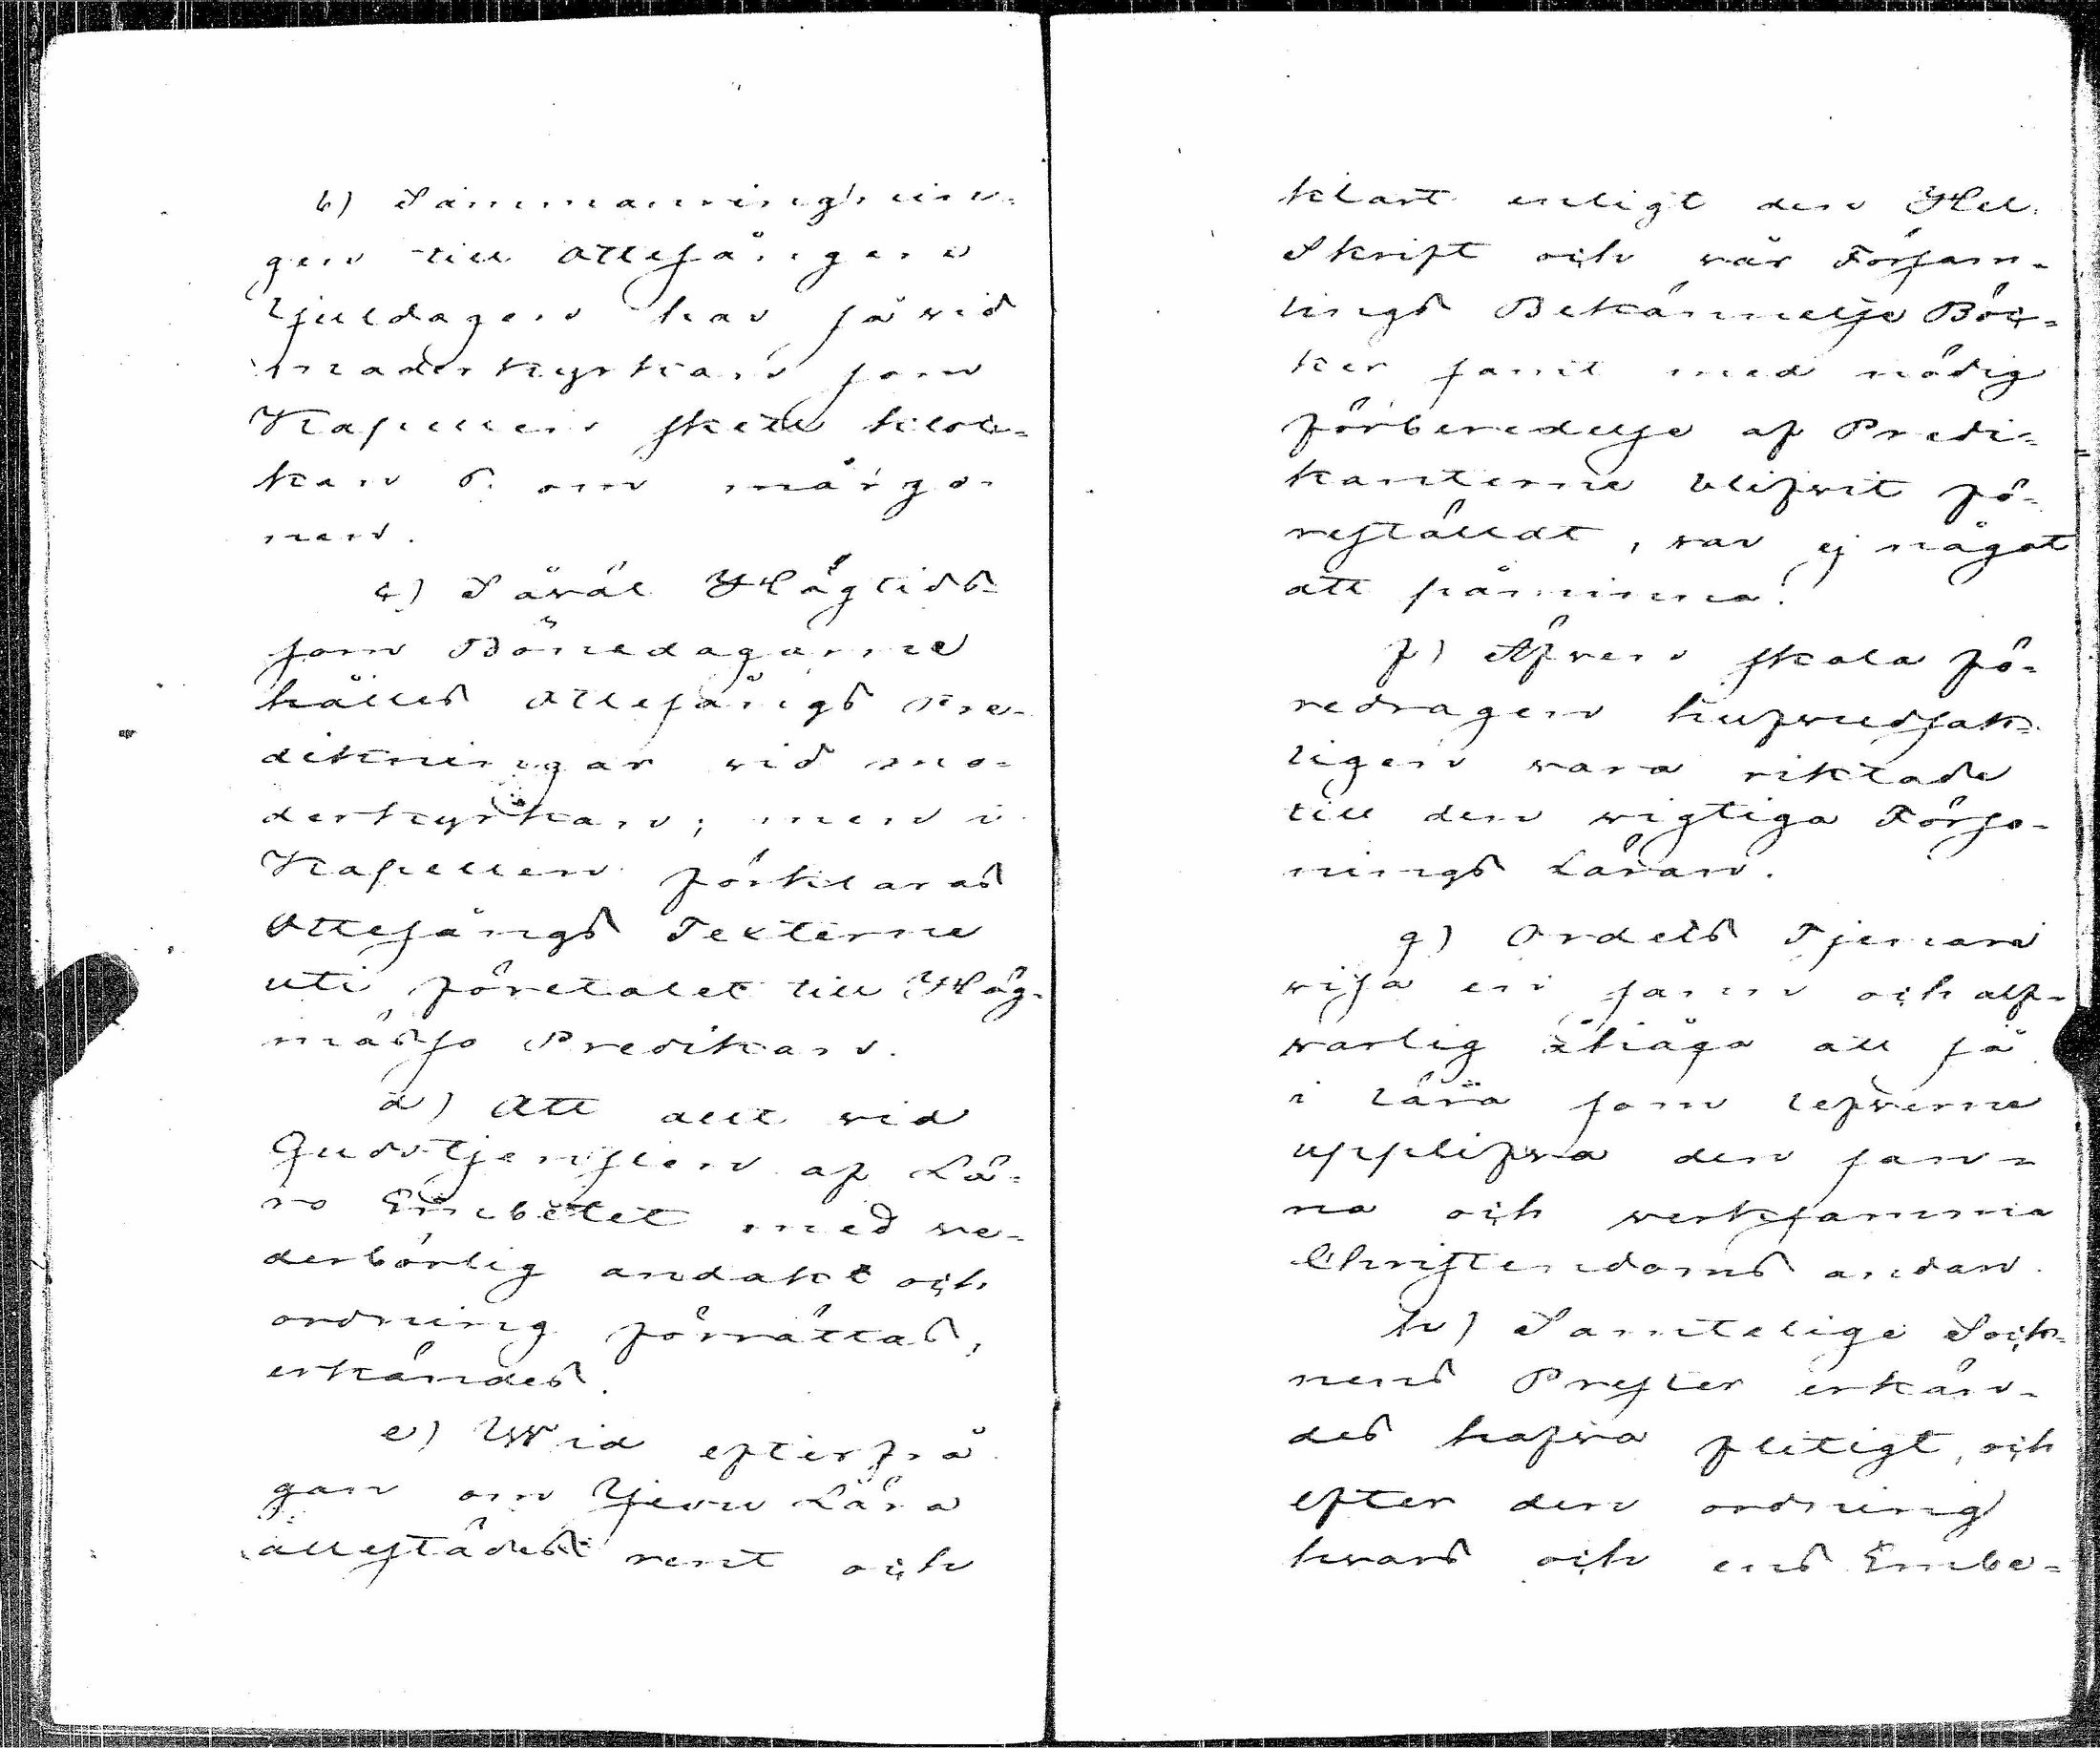 b) Sammanringnin-
gen till Ottesången
Juldagen har så vid
moderkyrkan som
Kapellen skett kloc-
kan 6. om mårgo-
nen.
c) Såväl Högtids-
som Bönedagarne
hålles Ottesångs Pre-
dikningar vid mo-
derkyrkan; men i
Kapellen förklaras
Ottesångs Texterne
uti företalet till Hög-
mässo Predikan.
d) Att allt vid
Gudstjensten af Lä-
ro Embetet med we-
derbörlig andakt och
ordning förrättas,
erkändes.
e) Wid efterfrå-
gan om Jesu Lära
allestädes rent och
klart enligt den Hel.
Skrift och vår Försam-
lings Bekännelse Böc-
ker samt med nödig
förberedelse af Predi-
kanterne blifvit fö-
restäldt, var ej något
att påminna.
f) Äfven skola fö-
redragen hufvudsak-
ligen vara riktade
till den vigtiga Förso-
nings Läran.
g) Ordets Tjenare
visa en sann och alf-
varlig åhåga att så
i lära som lefverne
upplifva den san-
na och verksamma
Christendoms andan.
h) Samtelige Sock-
nens Prester erkän-
des hafva flitigt, och
efter den ordning
hvars och ens Embe-